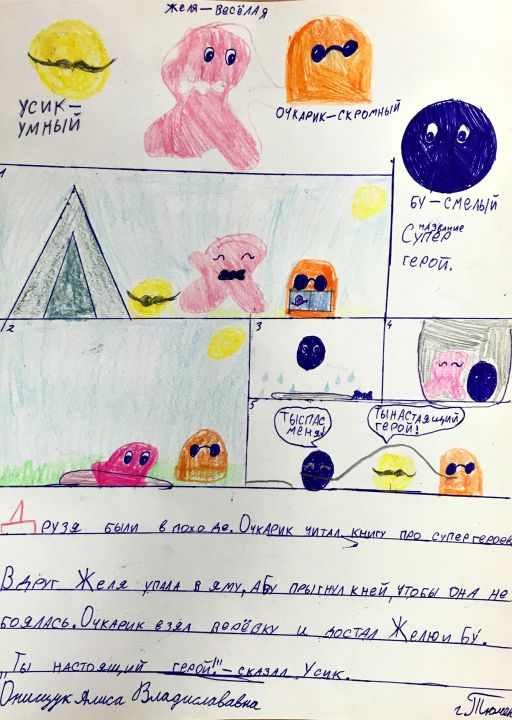 Желя—весёлая
Усик—
умный
Очкарик—скромный
Бу—смелый
название
Супер
герой.
1
2
3
4
5
Ты спас
меня!
Ты настаящий
герой!
Друзя были в походе. Очкарик читал книгу про супергероев
Вдруг Желя упала в яму, а Бу прыгнул к ней, чтобы она не
боялась. Очкарик взял верёвку и достал Желю и Бу.
„Ты настоящий герой!"—сказал Усик.
Онищук Алиса Владислававна
г. Тюмен